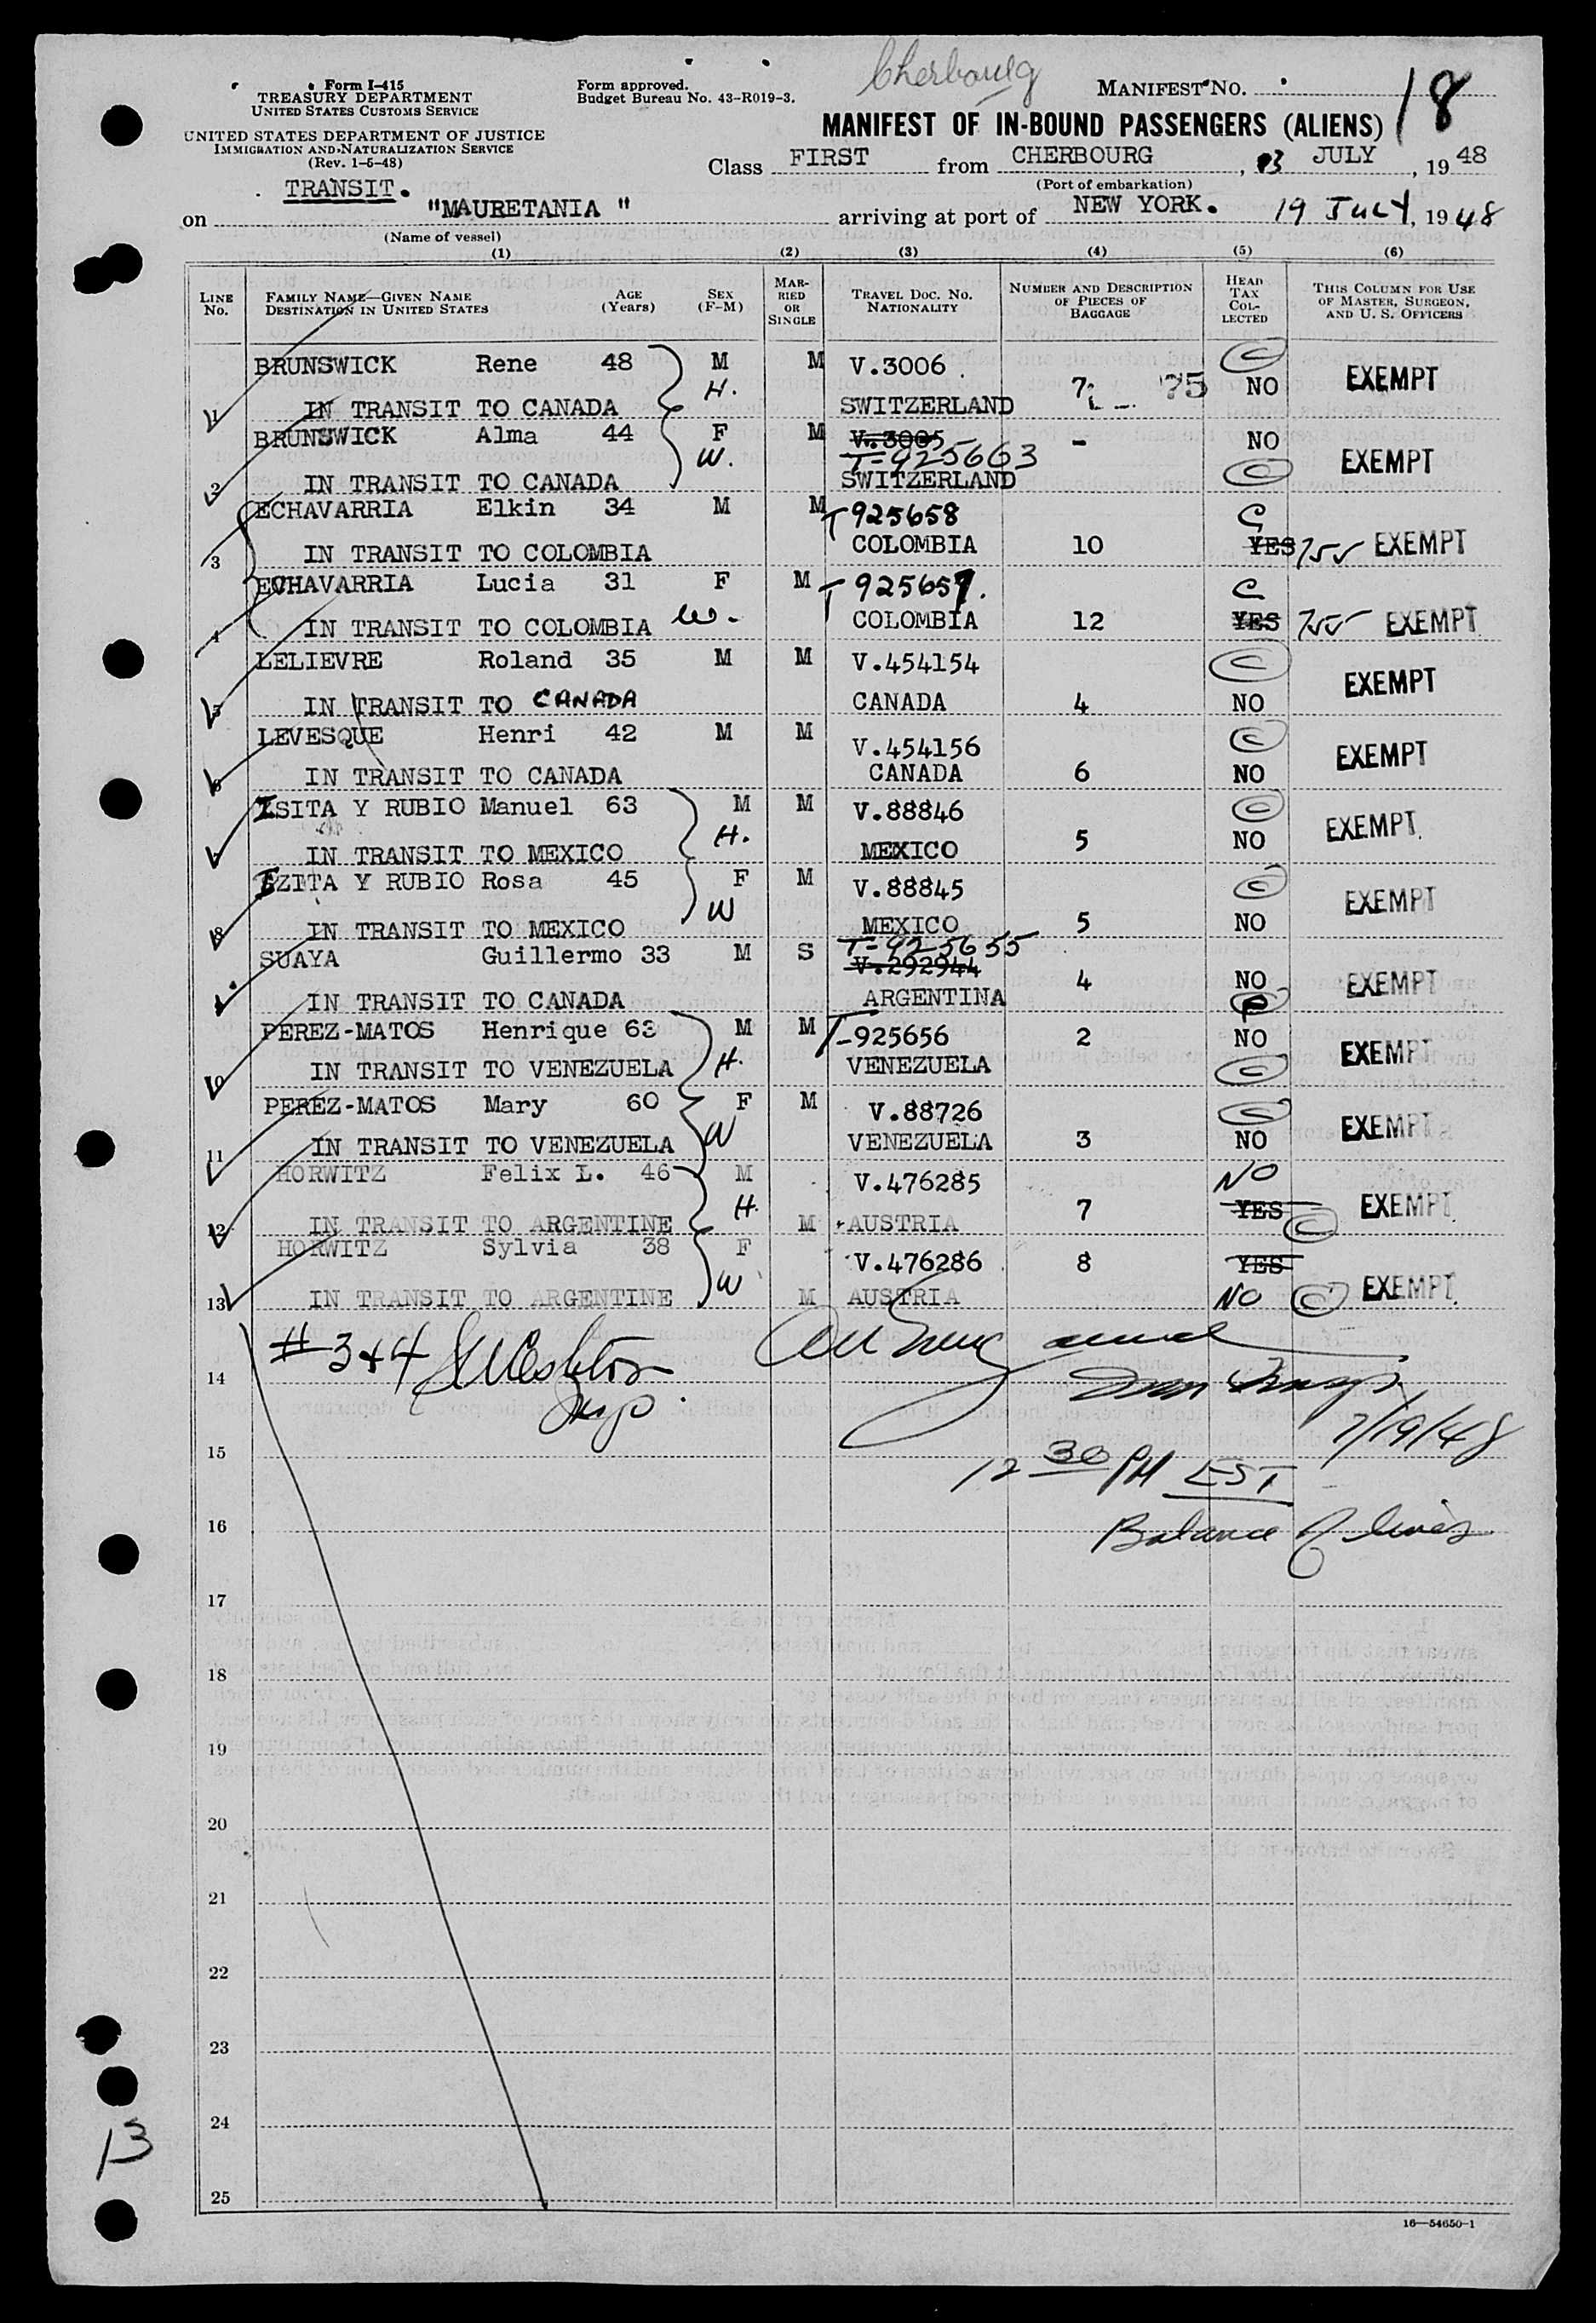 Cherbourg
Form I-415
TREASURY DEPARTMENT
UNITED STATES CUSTOMS SERVICE
UNITED STATES DEPARTMENT OF JUSTICE
IMMIGRATION AND NATURALIZATION SERVICE
(Rev. 1-5-48)
Form approved.
Budget Bureau No. 43-R019-3.
MANIFEST NO. 18
MANIFEST OF IN-BOUND PASSENGERS (ALIENS)
Class FIRST from CHERBOURG, 13 JULY, 1948
(Port of embarkation)
TRANSIT.
on "MAURETANIA" arriving at port of NEW YORK. 19 JULY, 1948
(Name of vessel)
(1) (2) (3) (4) (5) (6)
LINE No. FAMILY NAME—GIVEN NAME DESTINATION IN UNITED STATES AGE (Years) SEX (F-M) MARRIED OR SINGLE TRAVEL DOC. NO. NATIONALITY NUMBER AND DESCRIPTION OF PIECES OF BAGGAGE HEAD TAX COLLECTED THIS COLUMN FOR USE OF MASTER, SURGEON, AND U. S. OFFICERS
BRUNSWICK Rene 48 M M V.3006 C
1 IN TRANSIT TO CANADA H. SWITZERLAND 7 75 NO EXEMPT
BRUNSWICK Alma 44 F M V.3005 - NO
T-925663
2 IN TRANSIT TO CANADA W. SWITZERLAND C EXEMPT
ECHAVARRIA Elkin 34 M M T 925658 C
3 IN TRANSIT TO COLOMBIA COLOMBIA 10 YES 755 EXEMPT
ECHAVARRIA Lucia 31 F M T-925657. C
4 IN TRANSIT TO COLOMBIA W. COLOMBIA 12 YES 755 EXEMPT
LELIEVRE Roland 35 M M V.454154 C
5 IN TRANSIT TO CANADA CANADA 4 NO EXEMPT
LEVESQUE Henri 42 M M V.454156 C
6 IN TRANSIT TO CANADA CANADA 6 NO EXEMPT
ISITA Y RUBIO Manuel 63 M M V.88846 C
7 IN TRANSIT TO MEXICO H. MEXICO 5 NO EXEMPT
IZITA Y RUBIO Rosa 45 F M V.88845 C
8 IN TRANSIT TO MEXICO W MEXICO 5 NO EXEMPT
T-925655
SUAYA Guillermo 33 M S V.292944 4 NO
IN TRANSIT TO CANADA ARGENTINA EXEMPT
PEREZ-MATOS Henrique 63 M M T-925656 2 NO
10 IN TRANSIT TO VENEZUELA H. VENEZUELA C EXEMPT
PEREZ-MATOS Mary 60 F M V.88726 C
11 IN TRANSIT TO VENEZUELA W VENEZUELA 3 NO EXEMPT
HORWITZ Felix L. 46 M V.476285 NO
12 IN TRANSIT TO ARGENTINE H. M AUSTRIA 7 YES C EXEMPT
HORWITZ Sylvia 38 F V.476286 8 YES
13 IN TRANSIT TO ARGENTINE W M AUSTRIA NO C EXEMPT
#3+4
14
7/19/48
15
12 30 PM EST
16
Balance of lines
17
18
19
20
21
22
23
24
25
13
16—54650-1